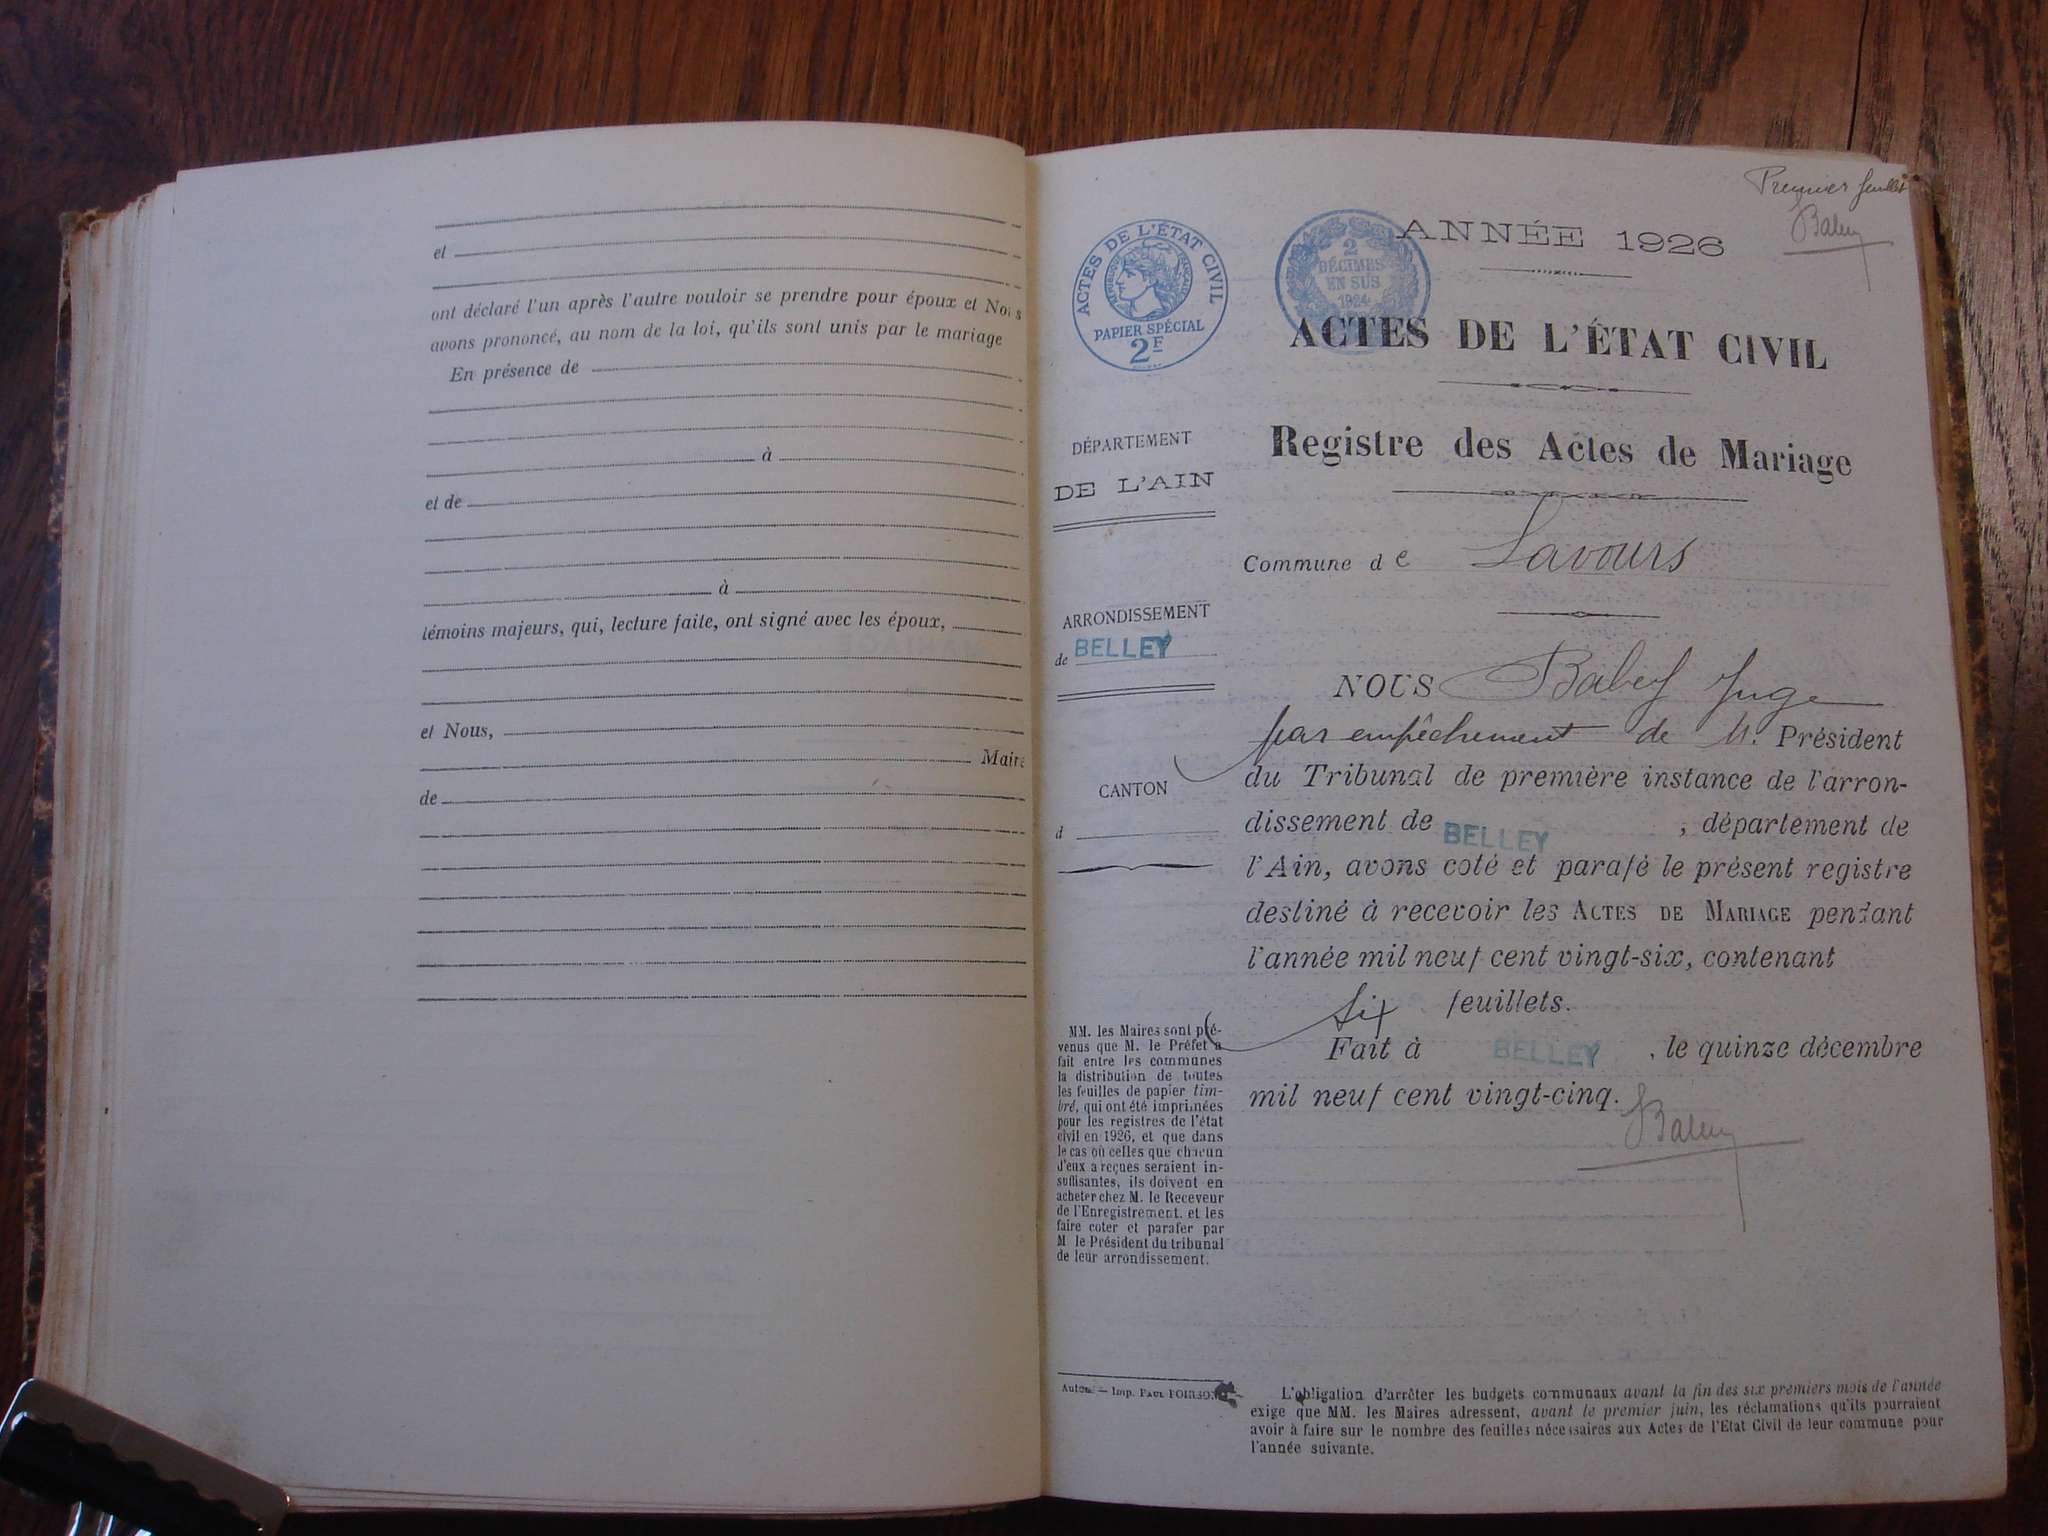 et
ont déclaré l'un après l'autre vouloir se prendre pour époux et Nous
avons prononcé, au nom de la loi, qu'ils sont unis par le mariage
En présence de
à
et de
à
témoins majeurs, qui, lecture faite, ont signé avec les époux,
et Nous,
Maire
de
Premier feuillet
Babey
ANNÉE 1926
ACTES DE L'ÉTAT CIVIL
RÉPUBLIQUE FRANÇAISE
PAPIER SPÉCIAL
2F
2
DÉCIMES
EN SUS
1924
ACTES DE L'ÉTAT CIVIL
Registre des Actes de Mariage
DÉPARTEMENT
DE L'AIN
ARRONDISSEMENT
de BELLEY
CANTON
d
MM. les Maires sont pré-
venus que M. le Préfet a
fait entre les communes
la distribution de toutes
les feuilles de papier tim-
bré, qui ont été imprimées
pour les registres de l'état
civil en 1926, et que dans
le cas où celles que chacun
d'eux a reçues seraient in-
suffisantes, ils doivent en
acheter chez M. le Receveur
de l'Enregistrement. et les
faire coter et parafer par
M le Président du tribunal
de leur arrondissement.
Commune de Lavours
NOUS Babey Juge
par empêchement de M. Président
du Tribunal de première instance de l'arron-
dissement de BELLEY, département de
l'Ain, avons coté et parafé le présent registre
destiné à recevoir les ACTES DE MARIAGE pendant
l'année mil neuf cent vingt-six, contenant
Six feuillets.
Fait à BELLEY, le quinze décembre
mil neuf cent vingt-cinq.
Babey
Imp. PAUL
L'obligation d'arrêter les budgets communaux avant la fin des six premiers mois de l'année
exige que MM. les Maires adressent, avant le premier juin, les réclamations qu'ils pourraient
avoir à faire sur le nombre des feuilles nécessaires aux Actes de l'Etat Civil de leur commune pour
l'année suivante.